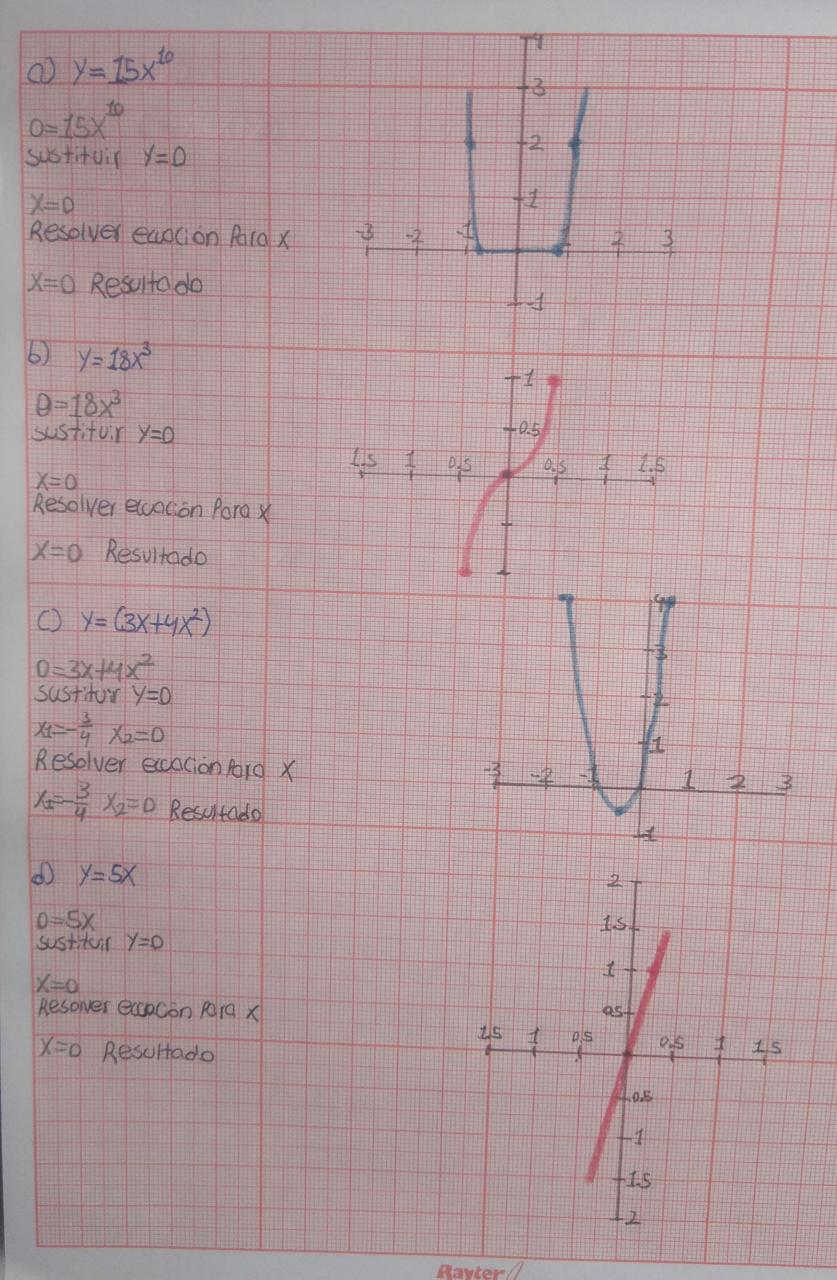 a) y=15x^10
0=15x^10
sustituir y=0
x=0
Resolver ecuación Para x
x=0 Resultado
4
3
2
1
-3 -2 -1 1 2 3
-1
b) y=18x³
0=18x³
sustituir y=0
x=0
Resolver ecuación Para x
x=0 Resultado
1
0.5
1.5 1 0.5 0.5 1 1.5
c) y=(3x+4x²)
0=3x+4x²
sustituir y=0
x₁=-3/4 x₂=0
Resolver ecuación Para x
x₁=-3/4 x₂=0 Resultado
4
3
2
1
-3 -2 -1 1 2 3
1
d) y=5x
0=5x
sustituir y=0
x=0
Resolver ecuación Para x
x=0 Resultado
2
1.5
1
0.5
1.5 1 0.5 0.5 1 1.5
0.5
1
1.5
2
Rayter